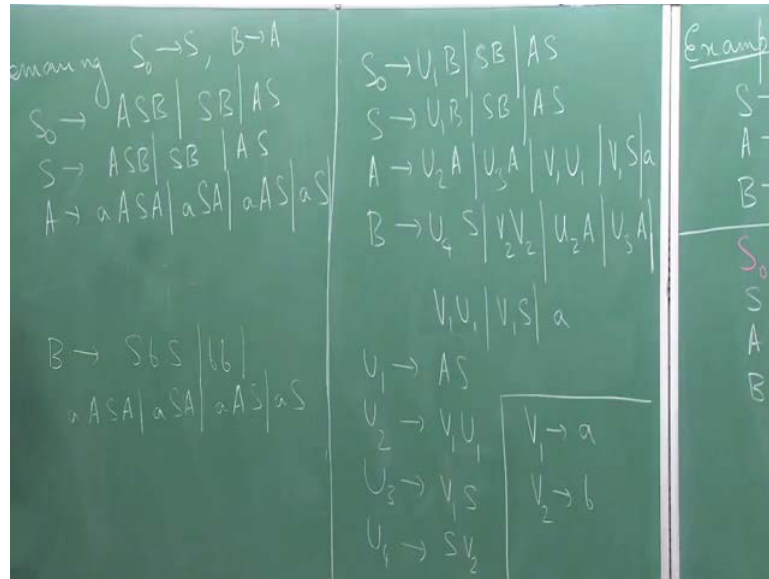 emoving S₀→S, B→A
S₀→ ASB | SB | AS
S→ ASB | SB | AS
A→ aASA | aSA | aAS | aS
B→ SbS | bb |
aASA | aSA | aAS | aS
S₀→U₁B | SB | AS
S→U₁B | SB | AS
A→U₂A | U₃A | V₁U₁ | V₁S | a
B→U₄S | V₂V₂ | U₂A | U₃A |
V₁U₁ | V₁S | a
U₁→ AS
U₂→ V₁U₁
U₃→ V₁S
U₄→ SV₂
V₁→a
V₂→b
Examp
S→
A→
B→
S₀
S
A
B